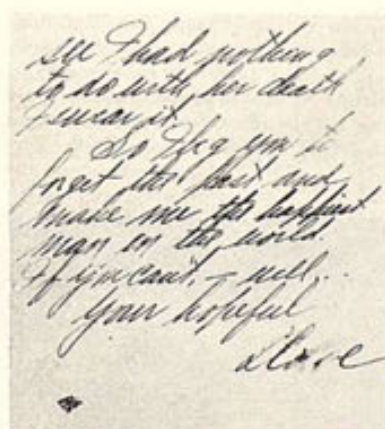 see I had nothing
to do with her death
I swear it.
So I beg you to
forget the past and
make me the happiest
man in the world.
If you can't, – well...
Your hopeful